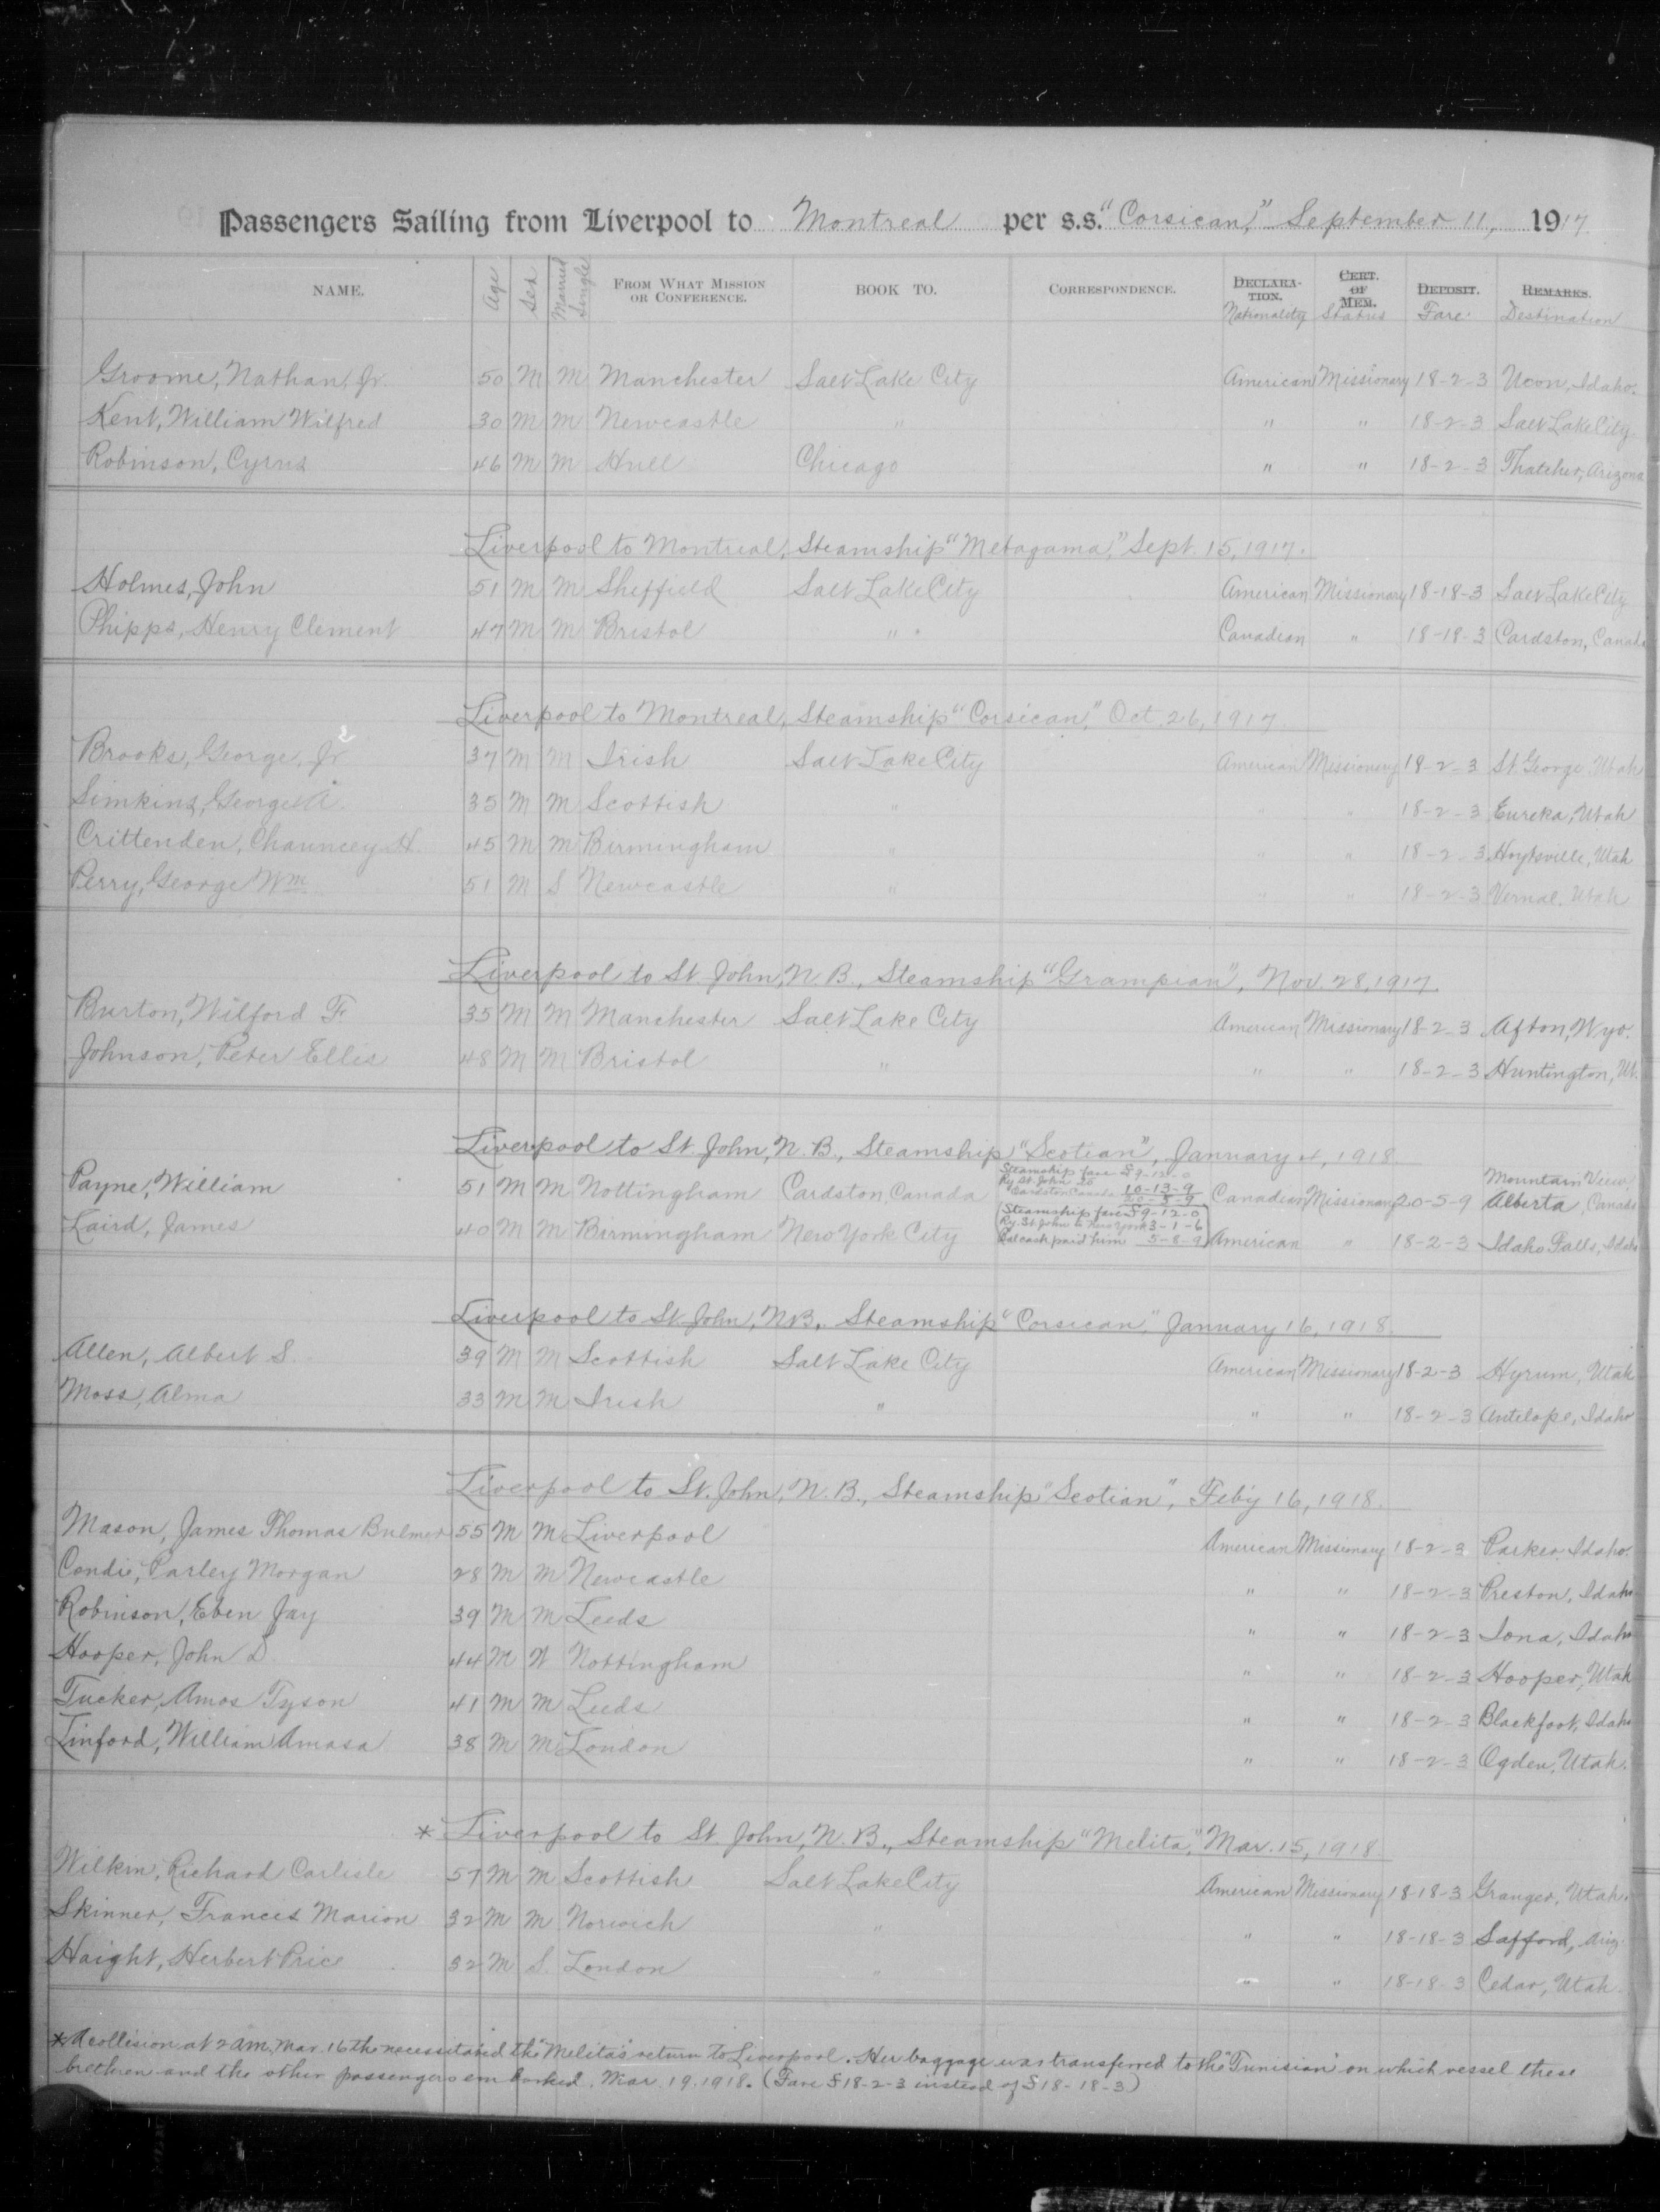 Passengers Sailing from Liverpool to Montreal per s.s. "Corsican," September 11, 1917.
NAME. Age Sex Married Single FROM WHAT MISSION OR CONFERENCE. BOOK TO. CORRESPONDENCE. DECLARATION. Nationality CERT. OF MEM. Status DEPOSIT. Fare REMARKS. Destination
Groome, Nathan, Jr. 50 M M Manchester Salt Lake City American Missionary 18-2-3 Ucon, Idaho.
Kent, William Wilfred 30 M M Newcastle " " " 18-2-3 Salt Lake City
Robinson, Cyrus 46 M M Hull Chicago " " 18-2-3 Thatcher, Arizona
Liverpool to Montreal, Steamship "Metagama," Sept. 15, 1917.
Holmes, John 51 M M Sheffield Salt Lake City American Missionary 18-18-3 Salt Lake City
Phipps, Henry Clement 47 M M Bristol " Canadian " 18-18-3 Cardston, Canada
Liverpool to Montreal, Steamship "Corsican," Oct. 26, 1917.
Brooks, George, Jr 37 M M Irish Salt Lake City American Missionary 18-2-3 St George, Utah
Simkins, George A. 35 M M Scottish " " " 18-2-3 Eureka, Utah
Crittenden, Chauncey H. 45 M M Birmingham " " " 18-2-3 Hoytsville, Utah
Perry, George Wm 51 M S Newcastle " " " 18-2-3 Vernal, Utah
Liverpool to St. John, N. B., Steamship "Grampian", Nov. 28, 1917.
Burton, Wilford F. 35 M M Manchester Salt Lake City American Missionary 18-2-3 Afton, Wyo.
Johnson, Peter Ellis 48 M M Bristol " " " 18-2-3 Huntington, Ut.
Liverpool to St. John, N. B., Steamship "Scotian", January 4, 1918.
Payne, William 51 M M Nottingham Cardston, Canada Steamship fare £9-12-0 Ry St. John to Cardston Canada 10-13-9 20-5-9 Canadian Missionary 20-5-9 Mountain View, Alberta, Canada
Laird, James 40 M M Birmingham New York City Steamship fare £9-12-0 Ry. St. John to New York 3-1-6 Bal cash paid him 5-8-9 American " 18-2-3 Idaho Falls, Idaho
Liverpool to St. John, N.B. Steamship "Corsican," January 16, 1918.
Allen, Albert S. 39 M M Scottish Salt Lake City American Missionary 18-2-3 Hyrum, Utah
Moss, Alma 33 M M Irish " " " 18-2-3 Antelope, Idaho
Liverpool to St. John, N. B., Steamship "Scotian", Feb'y 16, 1918.
Mason, James Thomas Bulmer 55 M M Liverpool American Missionary 18-2-3 Parker, Idaho.
Condie, Parley Morgan 28 M M Newcastle " " 18-2-3 Preston, Idaho
Robinson, Eben Jay 39 M M Leeds " " 18-2-3 Iona, Idaho
Hooper, John D 44 M W Nottingham " " 18-2-3 Hooper, Utah
Tucker, Amos Tyson 41 M M Leeds " " 18-2-3 Blackfoot, Idaho
Linford, William Amasa 38 M M London " " 18-2-3 Ogden, Utah.
* Liverpool to St. John, N. B., Steamship "Melita," Mar. 15, 1918
Wilkin, Richard Carlisle 57 M M Scottish Salt Lake City American Missionary 18-18-3 Granger, Utah.
Skinner, Francis Marion 32 M M Norwich " " " 18-18-3 Safford, Ariz.
Haight, Herbert Price 32 M S. London " " " 18-18-3 Cedar, Utah.
* A collision at 2 AM, Mar. 16th necessitated the "Melita's" return to Liverpool. Her baggage was transferred to the "Tunisian" on which vessel these
brethren and the other passengers embarked Mar. 19, 1918. (Fare £18-2-3 instead of £18-18-3)